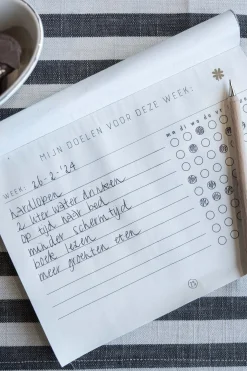 MIJN DOELEN VOOR DEZE WEEK:
WEEK: 26-2-'24
ma di wo do
hardlopen
2 liter water drinken
op tijd naar bed
minder schermtijd
boek lezen
meer groenten eten